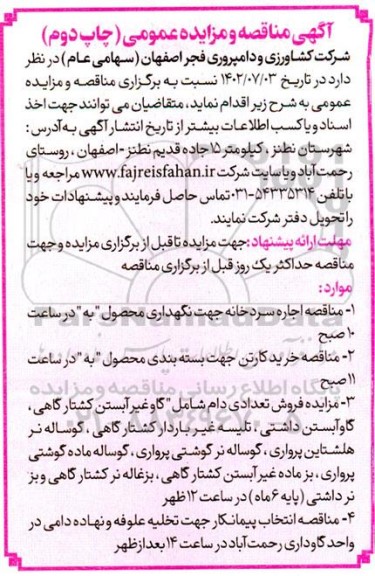 آگهی مناقصه و مزایده عمومی (چاپ دوم)
شرکت کشاورزی و دامپروری فجر اصفهان (سهامی عام) در نظر
دارد در تاریخ ۱۴۰۲/۰۷/۰۳ نسبت به برگزاری مناقصه و مزایده
عمومی به شرح زیر اقدام نماید، متقاضیان می توانند جهت اخذ
اسناد و یا کسب اطلاعات بیشتر از تاریخ انتشار آگهی به آدرس :
شهرستان نطنز ، کیلومتر ۱۵ جاده قدیم نطنز - اصفهان ، روستای
رحمت آباد و یا سایت شرکت www.fajreisfahan.ir مراجعه و یا
با تلفن ۵۴۳۳۵۳۱۴-۰۳۱ تماس حاصل فرمایند و پیشنهادات خود
را تحویل دفتر شرکت نمایند.
مهلت ارائه پیشنهاد: جهت مزایده تا قبل از برگزاری مزایده و جهت
مناقصه حداکثر یک روز قبل از برگزاری مناقصه
موارد:
۱- مناقصه اجاره سردخانه جهت نگهداری محصول "به" در ساعت
۱۰ صبح
۲- مناقصه خرید کارتن جهت بسته بندی محصول "به" در ساعت
۱۱ صبح
۳- مزایده فروش تعدادی دام شامل "گاو غیر آبستن کشتار گاهی ،
گاو آبستن داشتی ، تلیسه غیر باردار کشتار گاهی ، گوساله نر
هلشتاین پرواری ، گوساله نر گوشتی پرواری ، گوساله ماده گوشتی
پرواری ، بز ماده غیر آبستن کشتار گاهی ، بزغاله نر کشتار گاهی و بز
نر داشتی (پایه ۶ ماه) در ساعت ۱۲ ظهر
۴- مناقصه انتخاب پیمانکار جهت تخلیه علوفه و نهاده دامی در
واحد گاوداری رحمت آباد در ساعت ۱۴ بعد از ظهر
پایگاه اطلاع رسانی مناقصه و مزایده